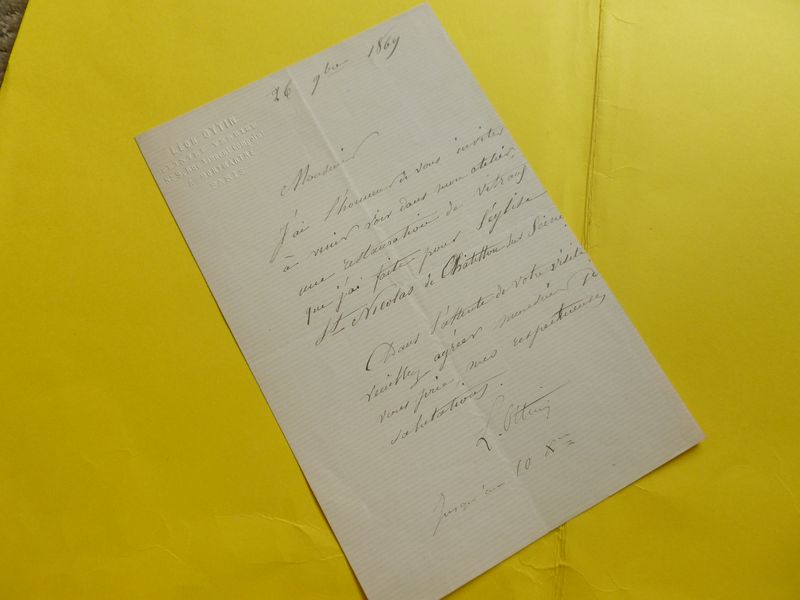 LÉON OTTIN
PARIS
26 9bre 1869
Monsieur
J'ai l'honneur de vous inviter
à venir voir dans mon atelier
une restauration de vitraux
que j'ai faite pour l'église
St Nicolas de Châtillon sur Seine.
Dans l'attente de votre visite
veuillez agréer monsieur je
vous prie mes respectueuses
salutations.
L. Ottin
Jusqu'au 10 Xbre